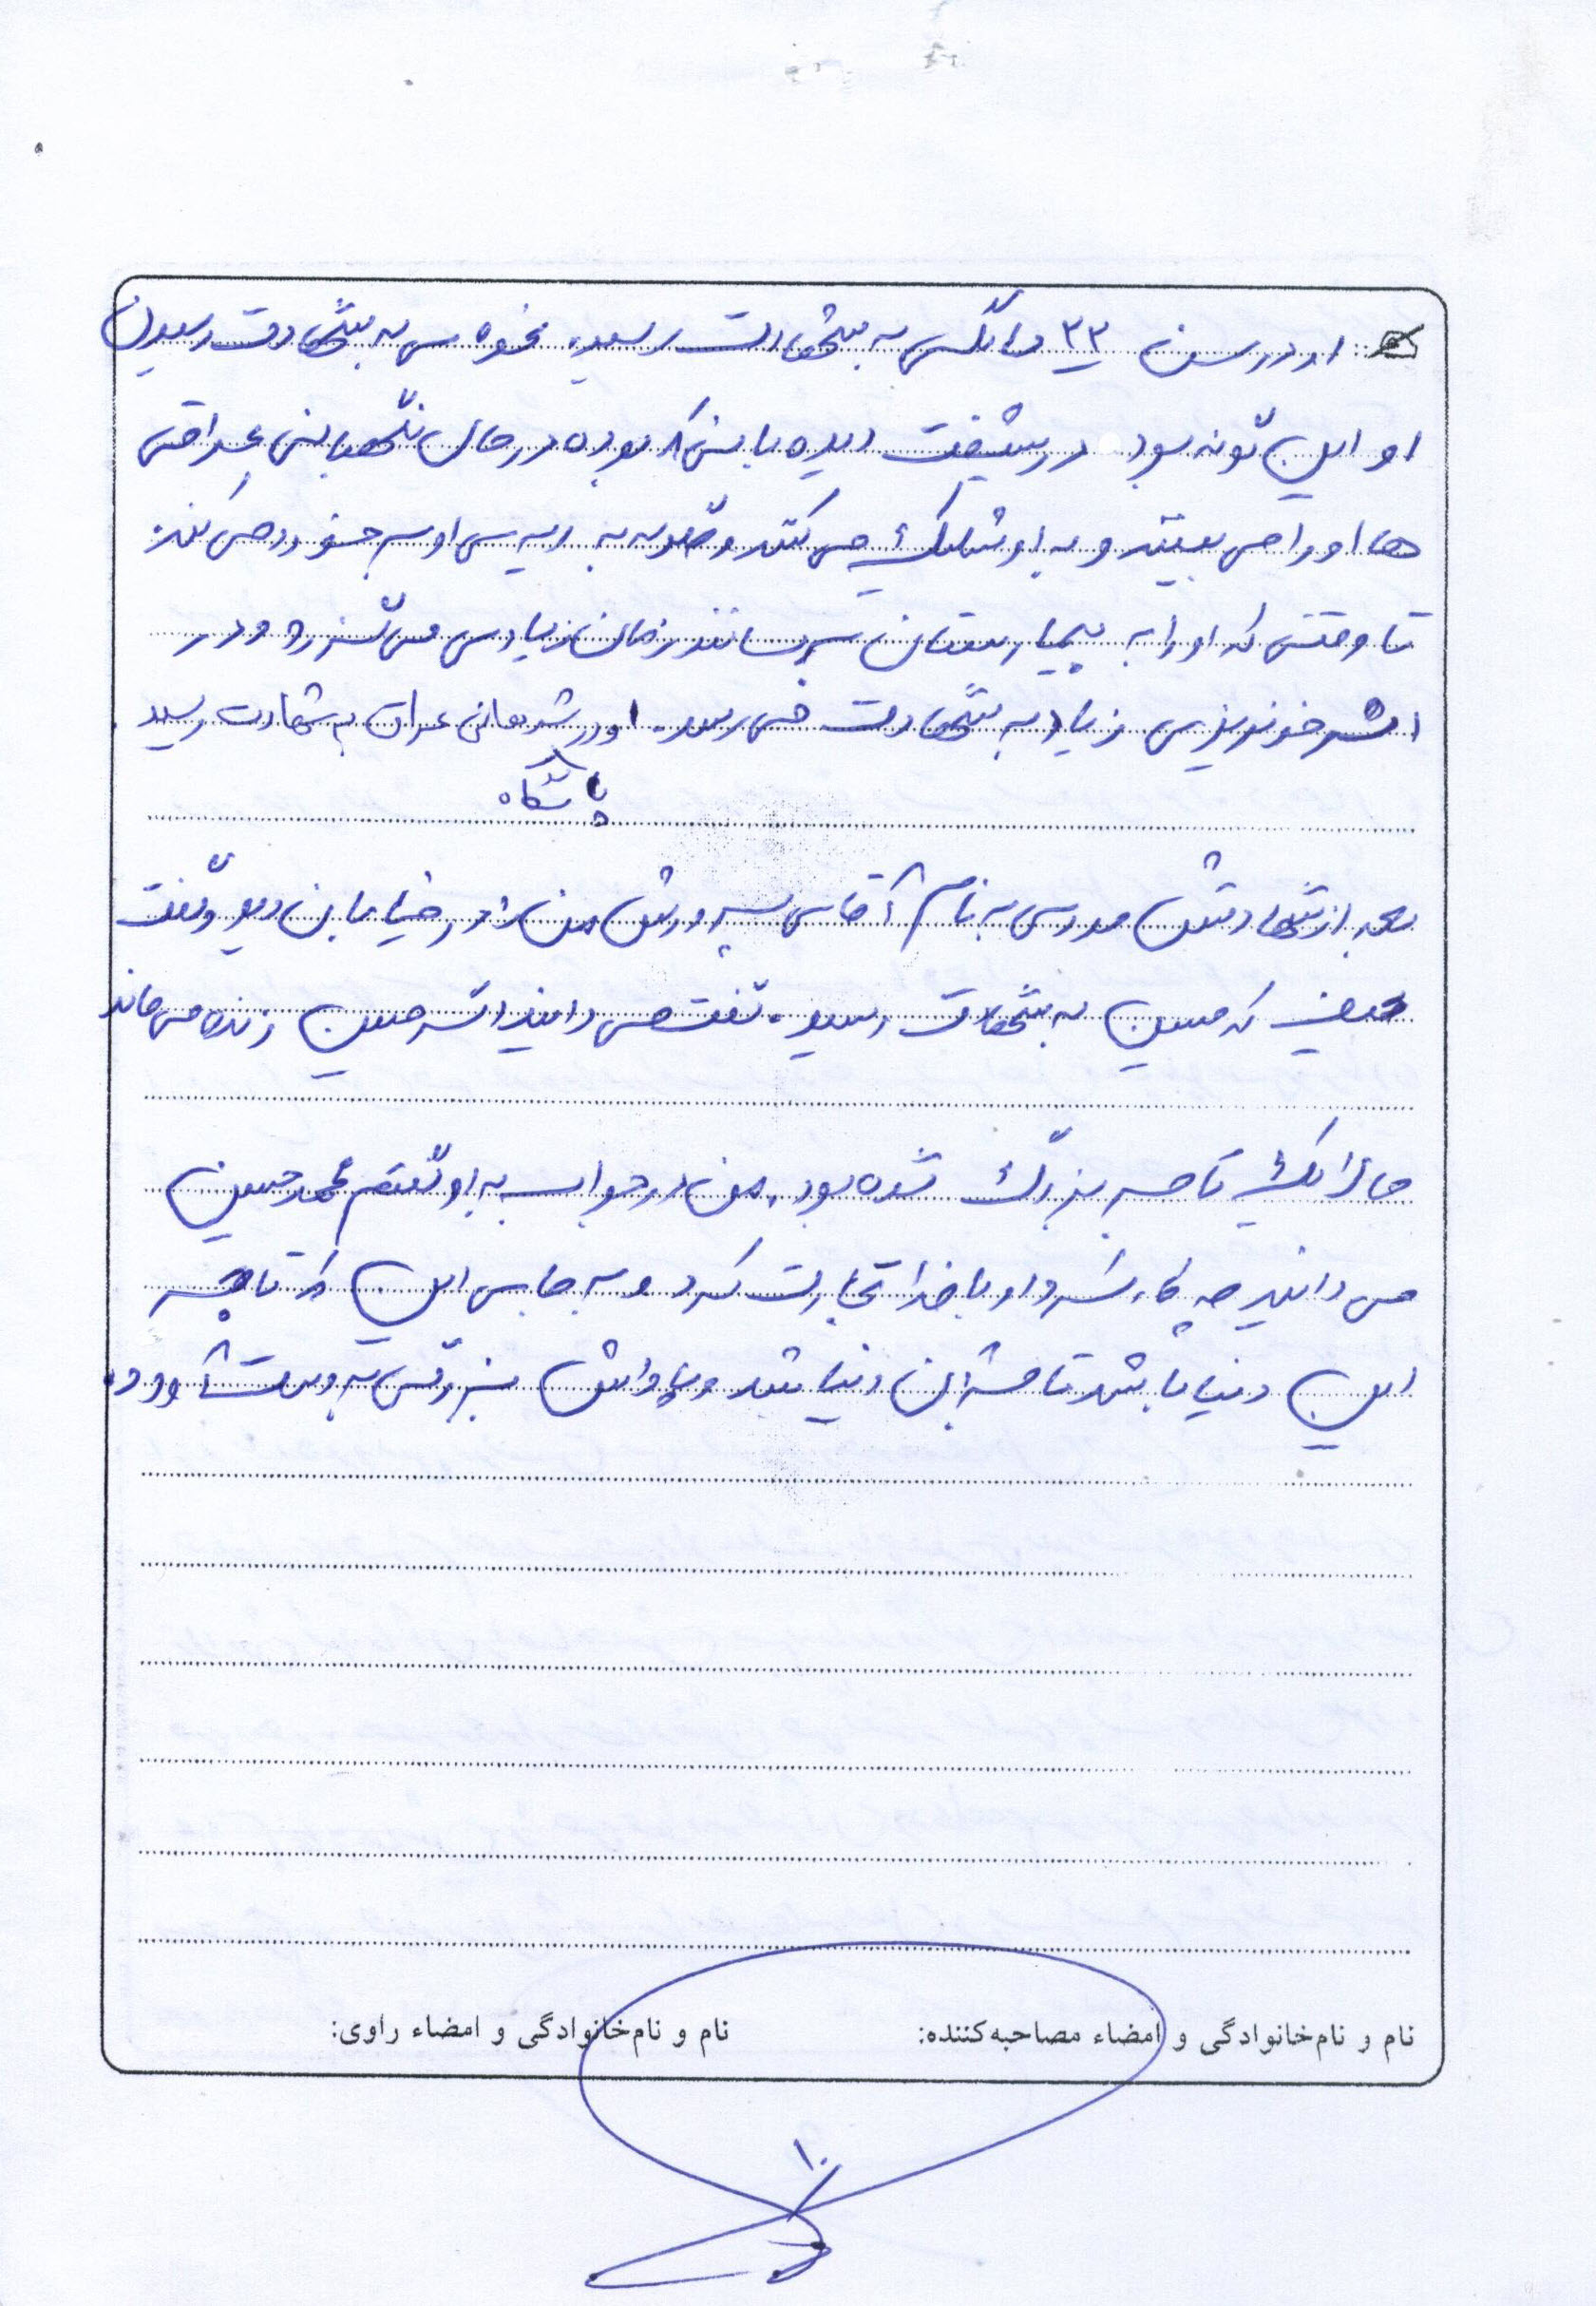 او در سن ۳۳ سالگی به شهادت رسید، نحوه ی به شهادت رسیدن
او این گونه بود در شیفت دیده بانی که بوده در حال نگهبانی عراقی
ها او را می بینند و به او شلیک می کنند و گلوله به ریه ی او برخورد می کند.
تا وقتی که او را به بیمارستان برسانند زمان زیادی می گذرد و در
اثر خونریزی زیاد به شهادت می رسد. او در شرهانی عراق به شهادت رسید
پاسگاه
بعد از شهادتش مردی به نام آقای پرورش من را در خیابان دید و گفت
حیف که حسین به شهادت رسید. گفت می دانید اگر حسین زنده می ماند
حالا یک تاجر بزرگ شده بود. من در جواب به او گفتم محمد حسین
می دانید چه کار کرد او با خدا تجارت کرد و به جای این که تاجر
این دنیا باشد تاجر آن دنیا شد و پاداش بزرگی به دست آورده
نام و نام‌خانوادگی و امضاء مصاحبه‌کننده: نام و نام‌خانوادگی و امضاء راوی:
۱۰